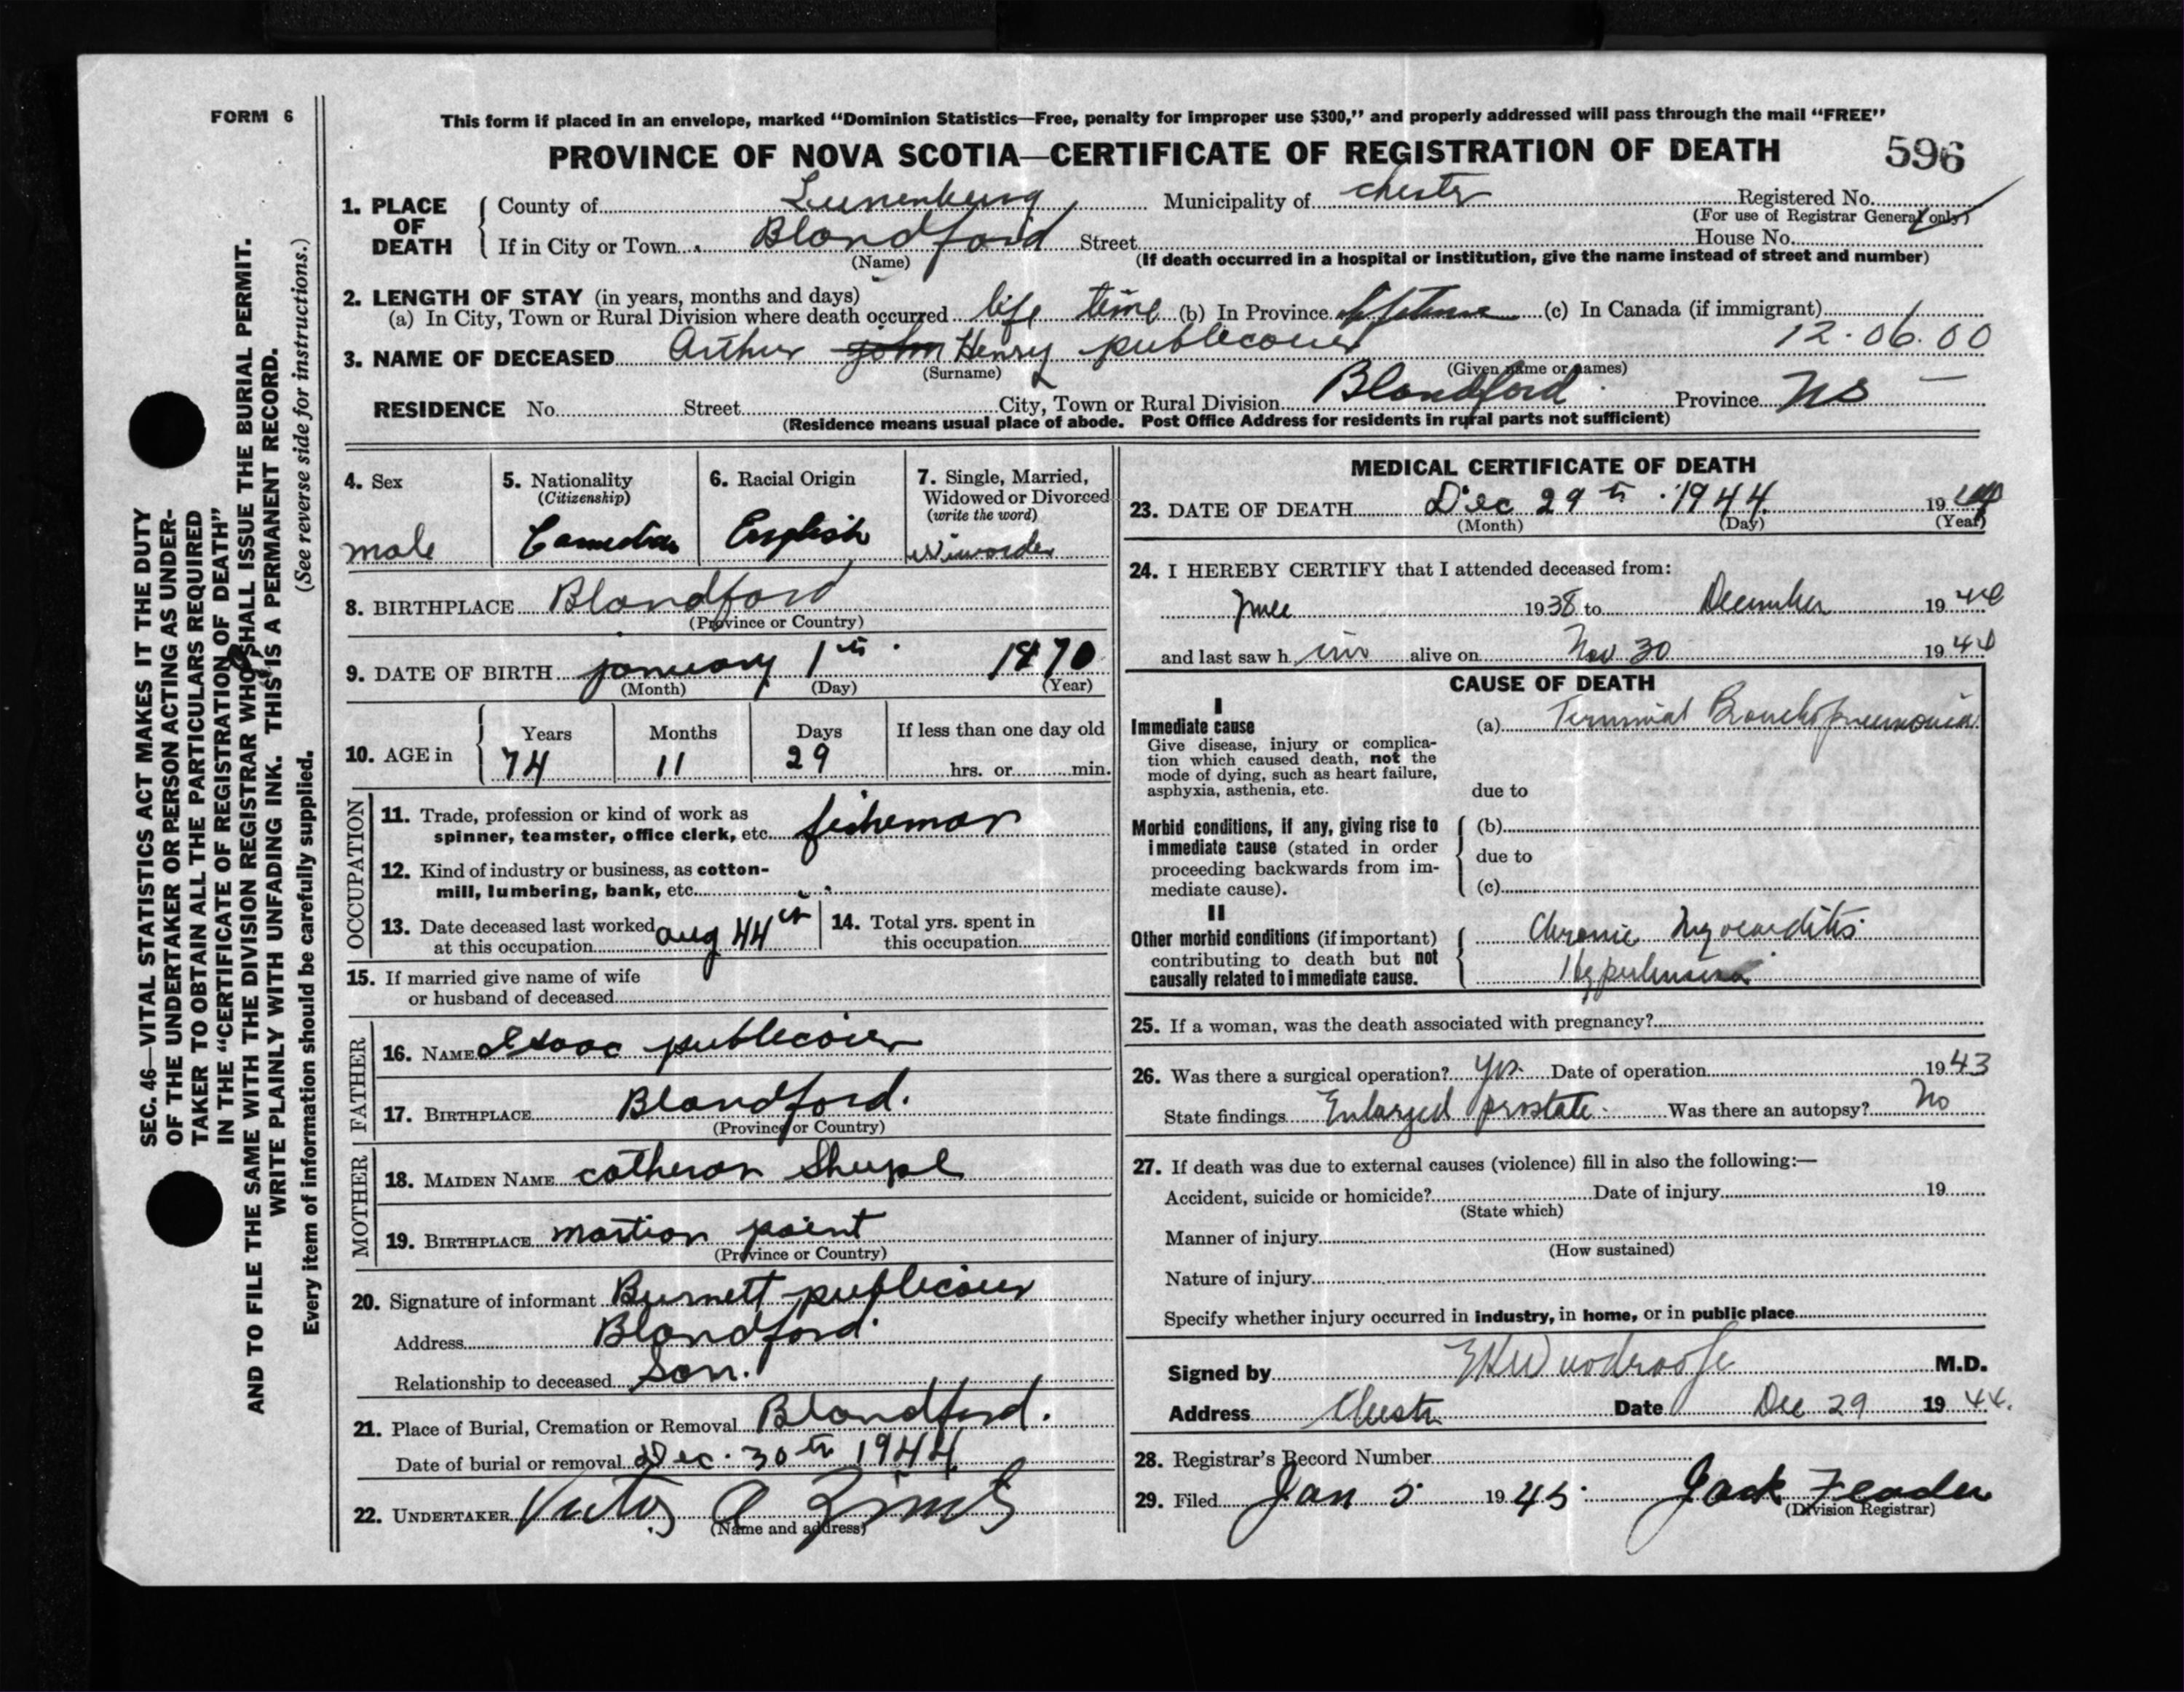 FORM 6
This form if placed in an envelope, marked “Dominion Statistics—Free, penalty for improper use $300,” and properly addressed will pass through the mail “FREE”
PROVINCE OF NOVA SCOTIA—CERTIFICATE OF REGISTRATION OF DEATH 596
1. PLACE OF DEATH
County of Lunenburg Municipality of Chester Registered No.
(For use of Registrar General only)
If in City or Town Blandford Street House No.
(Name) (If death occurred in a hospital or institution, give the name instead of street and number)
2. LENGTH OF STAY (in years, months and days)
(a) In City, Town or Rural Division where death occurred life time (b) In Province lifetime (c) In Canada (if immigrant)
12.06.00
3. NAME OF DECEASED Arthur john Henry publicover
(Surname) (Given name or names)
RESIDENCE No. Street City, Town or Rural Division Blandford Province NS
(Residence means usual place of abode. Post Office Address for residents in rural parts not sufficient)
4. Sex male
5. Nationality (Citizenship) Canadian
6. Racial Origin English
7. Single, Married, Widowed or Divorced (write the word)
8. BIRTHPLACE Blandford
(Province or Country)
9. DATE OF BIRTH january 1th 1870
(Month) (Day) (Year)
10. AGE in Years 74 Months 11 Days 29 If less than one day old hrs. or min.
OCCUPATION
11. Trade, profession or kind of work as
spinner, teamster, office clerk, etc. fisheman
12. Kind of industry or business, as cotton-
mill, lumbering, bank, etc.
13. Date deceased last worked
at this occupation aug 44
14. Total yrs. spent in
this occupation
15. If married give name of wife
or husband of deceased
FATHER
16. NAME Isaac publicover
17. BIRTHPLACE Blandford.
(Province or Country)
MOTHER
18. MAIDEN NAME catheran Shupe
19. BIRTHPLACE martion point
(Province or Country)
20. Signature of informant Burnett publicover
Address Blandford.
Relationship to deceased Son.
21. Place of Burial, Cremation or Removal Blandford.
Date of burial or removal Dec. 30th 1944
22. UNDERTAKER Victor A
(Name and address)
MEDICAL CERTIFICATE OF DEATH
23. DATE OF DEATH Dec 29th 1944 19 44
(Month) (Day) (Year)
24. I HEREBY CERTIFY that I attended deceased from:
June 1938 to December 1944
and last saw h im alive on Nov 30 1944
CAUSE OF DEATH
I
Immediate cause
Give disease, injury or complica-
tion which caused death, not the
mode of dying, such as heart failure,
asphyxia, asthenia, etc.
(a) Terminal Bronchopneumonia
due to
Morbid conditions, if any, giving rise to
immediate cause (stated in order
proceeding backwards from im-
mediate cause).
(b)
due to
(c)
II
Other morbid conditions (if important)
contributing to death but not
causally related to immediate cause.
Chronic Myocarditis
Hypertension
25. If a woman, was the death associated with pregnancy?
26. Was there a surgical operation? Yes. Date of operation 1943
State findings Enlarged prostate. Was there an autopsy? No
27. If death was due to external causes (violence) fill in also the following:—
Accident, suicide or homicide? Date of injury 19
(State which)
Manner of injury
(How sustained)
Nature of injury
Specify whether injury occurred in industry, in home, or in public place
Signed by Woodroofe M.D.
Address Chester Date Dec 29 1944.
28. Registrar's Record Number
29. Filed Jan 5 1945. Jack
(Division Registrar)
SEC. 46—VITAL STATISTICS ACT MAKES IT THE DUTY
OF THE UNDERTAKER OR PERSON ACTING AS UNDER-
TAKER TO OBTAIN ALL THE PARTICULARS REQUIRED
IN THE “CERTIFICATE OF REGISTRATION OF DEATH”
AND TO FILE THE SAME WITH THE DIVISION REGISTRAR WHO SHALL ISSUE THE BURIAL PERMIT.
WRITE PLAINLY WITH UNFADING INK. THIS IS A PERMANENT RECORD.
Every item of information should be carefully supplied. (See reverse side for instructions.)